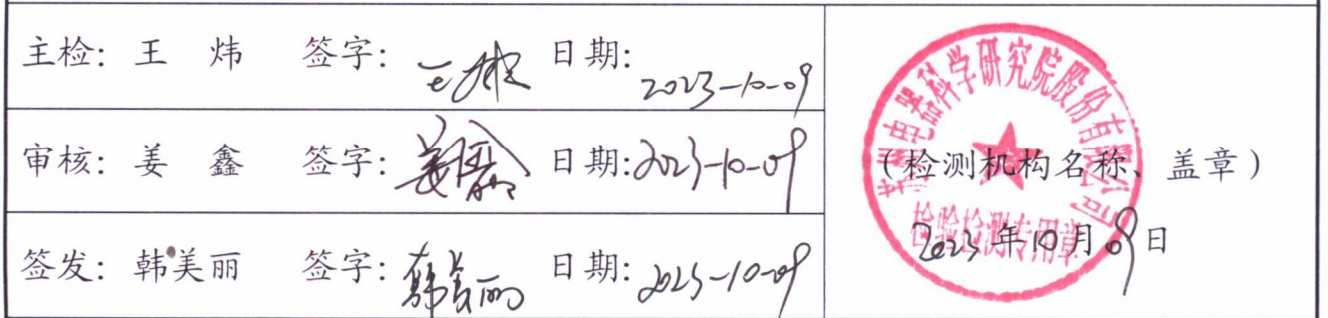 主检: 王 炜 签字: 王炜 日期: 2023-10-09
审核: 姜 鑫 签字: 姜鑫 日期: 2023-10-09
签发: 韩美丽 签字: 韩美丽 日期: 2023-10-09
苏州电器科学研究院股份有限公司
(检测机构名称、盖章)
检验检测专用章
2023年10月09日